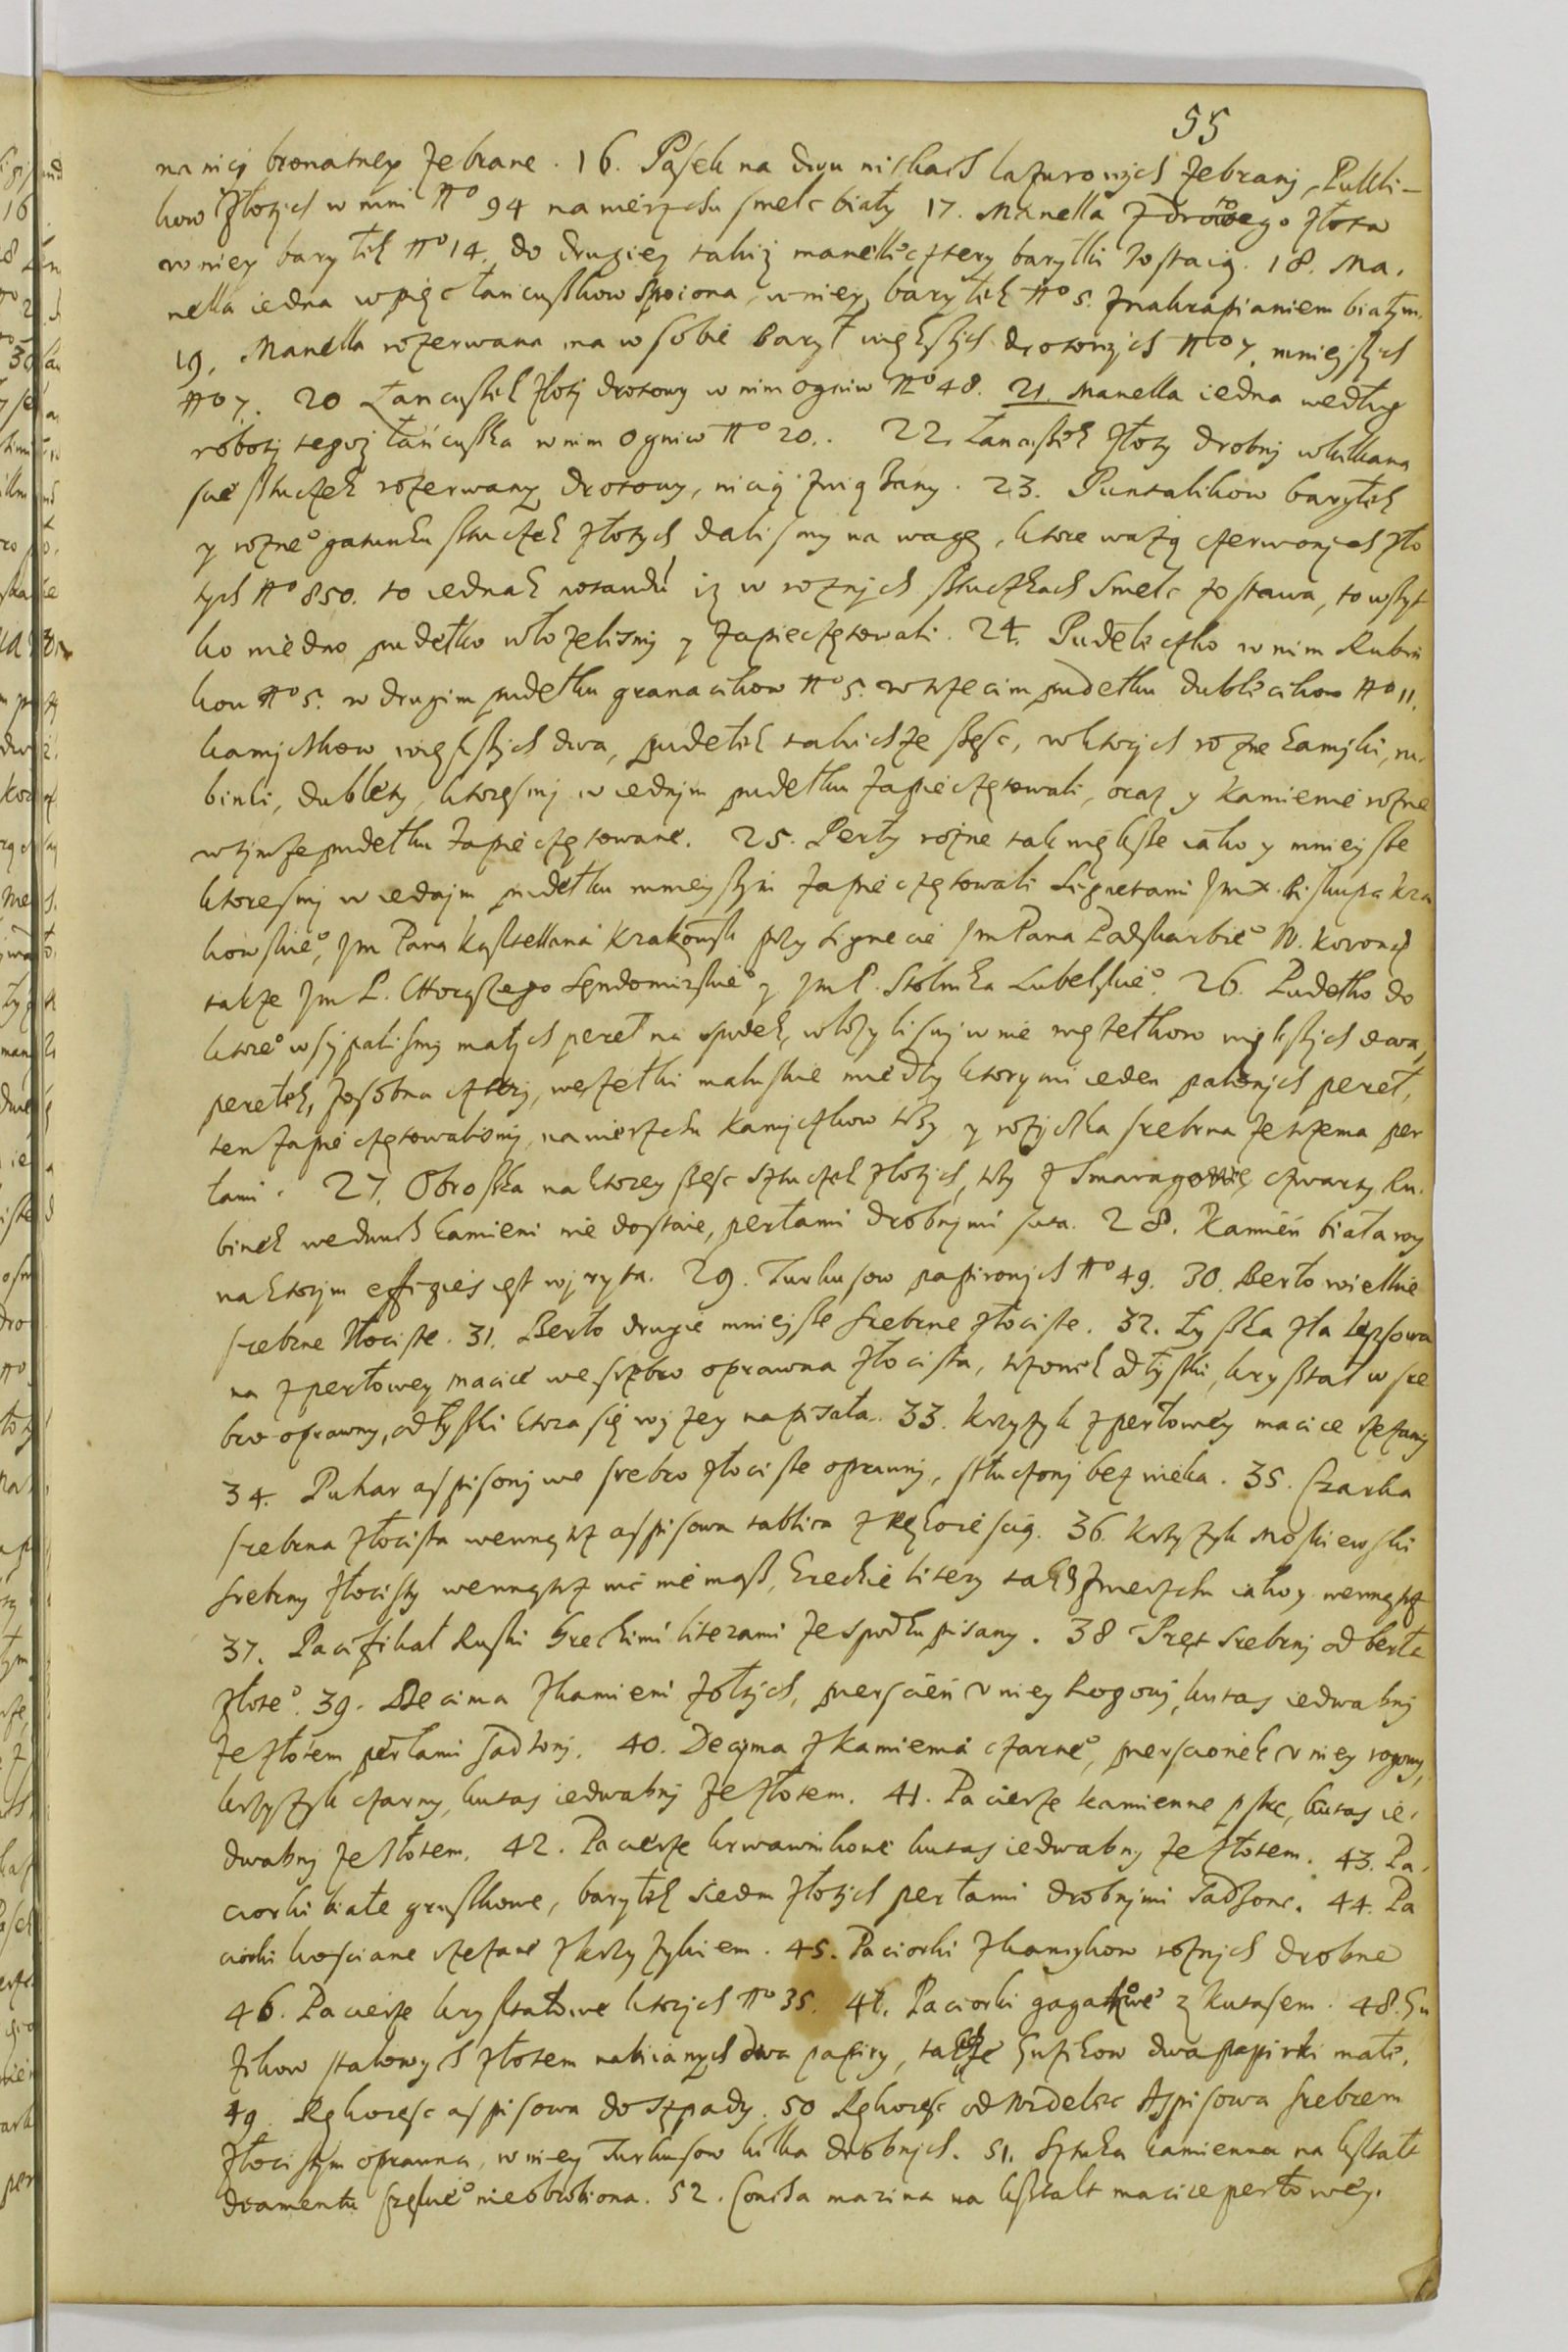 55
na nici bronatney zebrane. 16. Pasek na dwu nitkach lazurowych zebrany, Pukli-
kow złotych w nim No 94 na wierzchu smelc biały 17. Manella z drotowego złota
w niey baryłek No 14. do drugiey takiz manelli cztery baryłki zostaią. 18. Ma,
nella iedna w pięc łancuszkow spoiona, w niey baryłek No 5. z nakrapianiem białym.
19. Manella rozerwana ma w sobie Barył większych drotowych No 7. mnieyszych
No 7. 20 Łancuszek złoty drotowy w nim ogniw No 48. 21. Manella iedna według
roboty tegoz łańcuszka w nim ogniw No 20.. 22. Łancuszek złoty drobny w kilkana
scie sztuczek rozerwany drotowy, nicią związany. 23. Puntalikow baryłek
y rozneo gatunku sztuczek złotych dalismy na wagę, ktore wazą czerwonych zło
tych No 850. to iednak iz w roznych sztuczkach smelc zostawa, to wszyt
ko w iedno pudełko włozelismy y zapieczętowali. 24. Pudełeczko w nim Rubin
kow No 5. w drugim pudełku granacikow No 5. w trzecim pudełku dublecikow No 11.
kamyczkow większych dwa, pudełek takichze szesc, w ktorych rozne kamyki, ru,
binki, dublety, ktoresmy w iednym pudełku zapieczętowali, oraz y kamienie rozne
w tymze pudełku zapieczętowane. 25. Perły rożne tak większe iako y mnieysze
ktoresmy w iednym pudełku mnieyszym zapieczętowali Signetami Jm X. Biskupa kra
kowskieo, Jm Pana Kasztellana Krakowsk przy Signecie Jm Pana Podskarbieo W. Koronneo
takze Jm P. Chorązego Sendomirskieo y Jm P. Stolnika Lubelskieo. 26. Pudełko do
ktoreo wsypalismy małych pereł na spodek, włozylismy w nie węzełkow większych dwa,
perełek, zosobna cztery, węzełki maluskie miedzy ktorymi ieden palonych pereł,
ten zapieczętowalismy, na wierzchu Kamyczkow trzy y rozyczka srebrna ze trzema per
łami. 27. Obroszka na ktorey szesc sztuczek złotych, trzy z Smaragdami, czwarty Ru,
binek we dwuch kamieni nie dostaie, perłami drobnymi suta. 28. Kamień białawy
na ktorym effigies iest wyryta. 29. Turkusow papirowych No 49. 30. Berło wielkie
srebrne złociste. 31. Berło drugie mnieysze srebrne złociste. 32. Łyszka
na z perłowey macice we srzbro oprawna złocista, trzonek od łyszki, krysztal w sre
bro oprawny, od łyszki ktora się wyzey napisała. 33. Krzyzyk z perłowey macice rzezany
34. Puhar aspisony we srebro złociste oprawny, stłuczony bez wieka. 35. Czarka
srebrna złocista wewnątrz aspisowa tablica z rękoieścią. 36. Krzyzyk Moskiewski
srebrny złocisty wewnątrz nic nie masz, Greckie litery tak z wierzchu iako y wewnątrz
37. Pacifikał Ruski Greckimi literami ze spodku pisany. 38 Pręt srebrny od berła
złoteo. 39. Decima z kamieni zołtych, piersćień v niey Rogowy, kutas iedwabny
ze złotem perłami sadzony. 40. Decyma z kamienia czarneo, pierscionek v niey rogowy,
krzyzyk czarny, kutas iedwabny ze złotem. 41. Pacierze kamienne pstre, kutas ie,
dwabny ze złotem. 42. Pacierze krwawnikowe kutas iedwabny ze złotem. 43. Pa,
ciorki białe gruszkowe, baryłek siedm złotych perłami drobnymi sadzone. 44. Pa
ciorki kosciane rzezane z krzyzykiem. 45. Paciorki z kamykow roznych drobne
46. Pacierze krysztalowe ktorych No 35. 47. Paciorki gagatkowe z kutasem. 48. Gu
zikow stalowych złotem nabiianych dwa papiry, takze Guzikow dwa papirki małe.
49. Rękoiesc aspisowa do szpady. 50 Rękoiesc od widelec Aspisowa srebrem
złocistym oprawna, w niey Turkusow kilka drobnych. 51. Sztuka kamienna na kształt
diamentu nieobrobiona. 52. Concha marina na kształt macice perłowey.